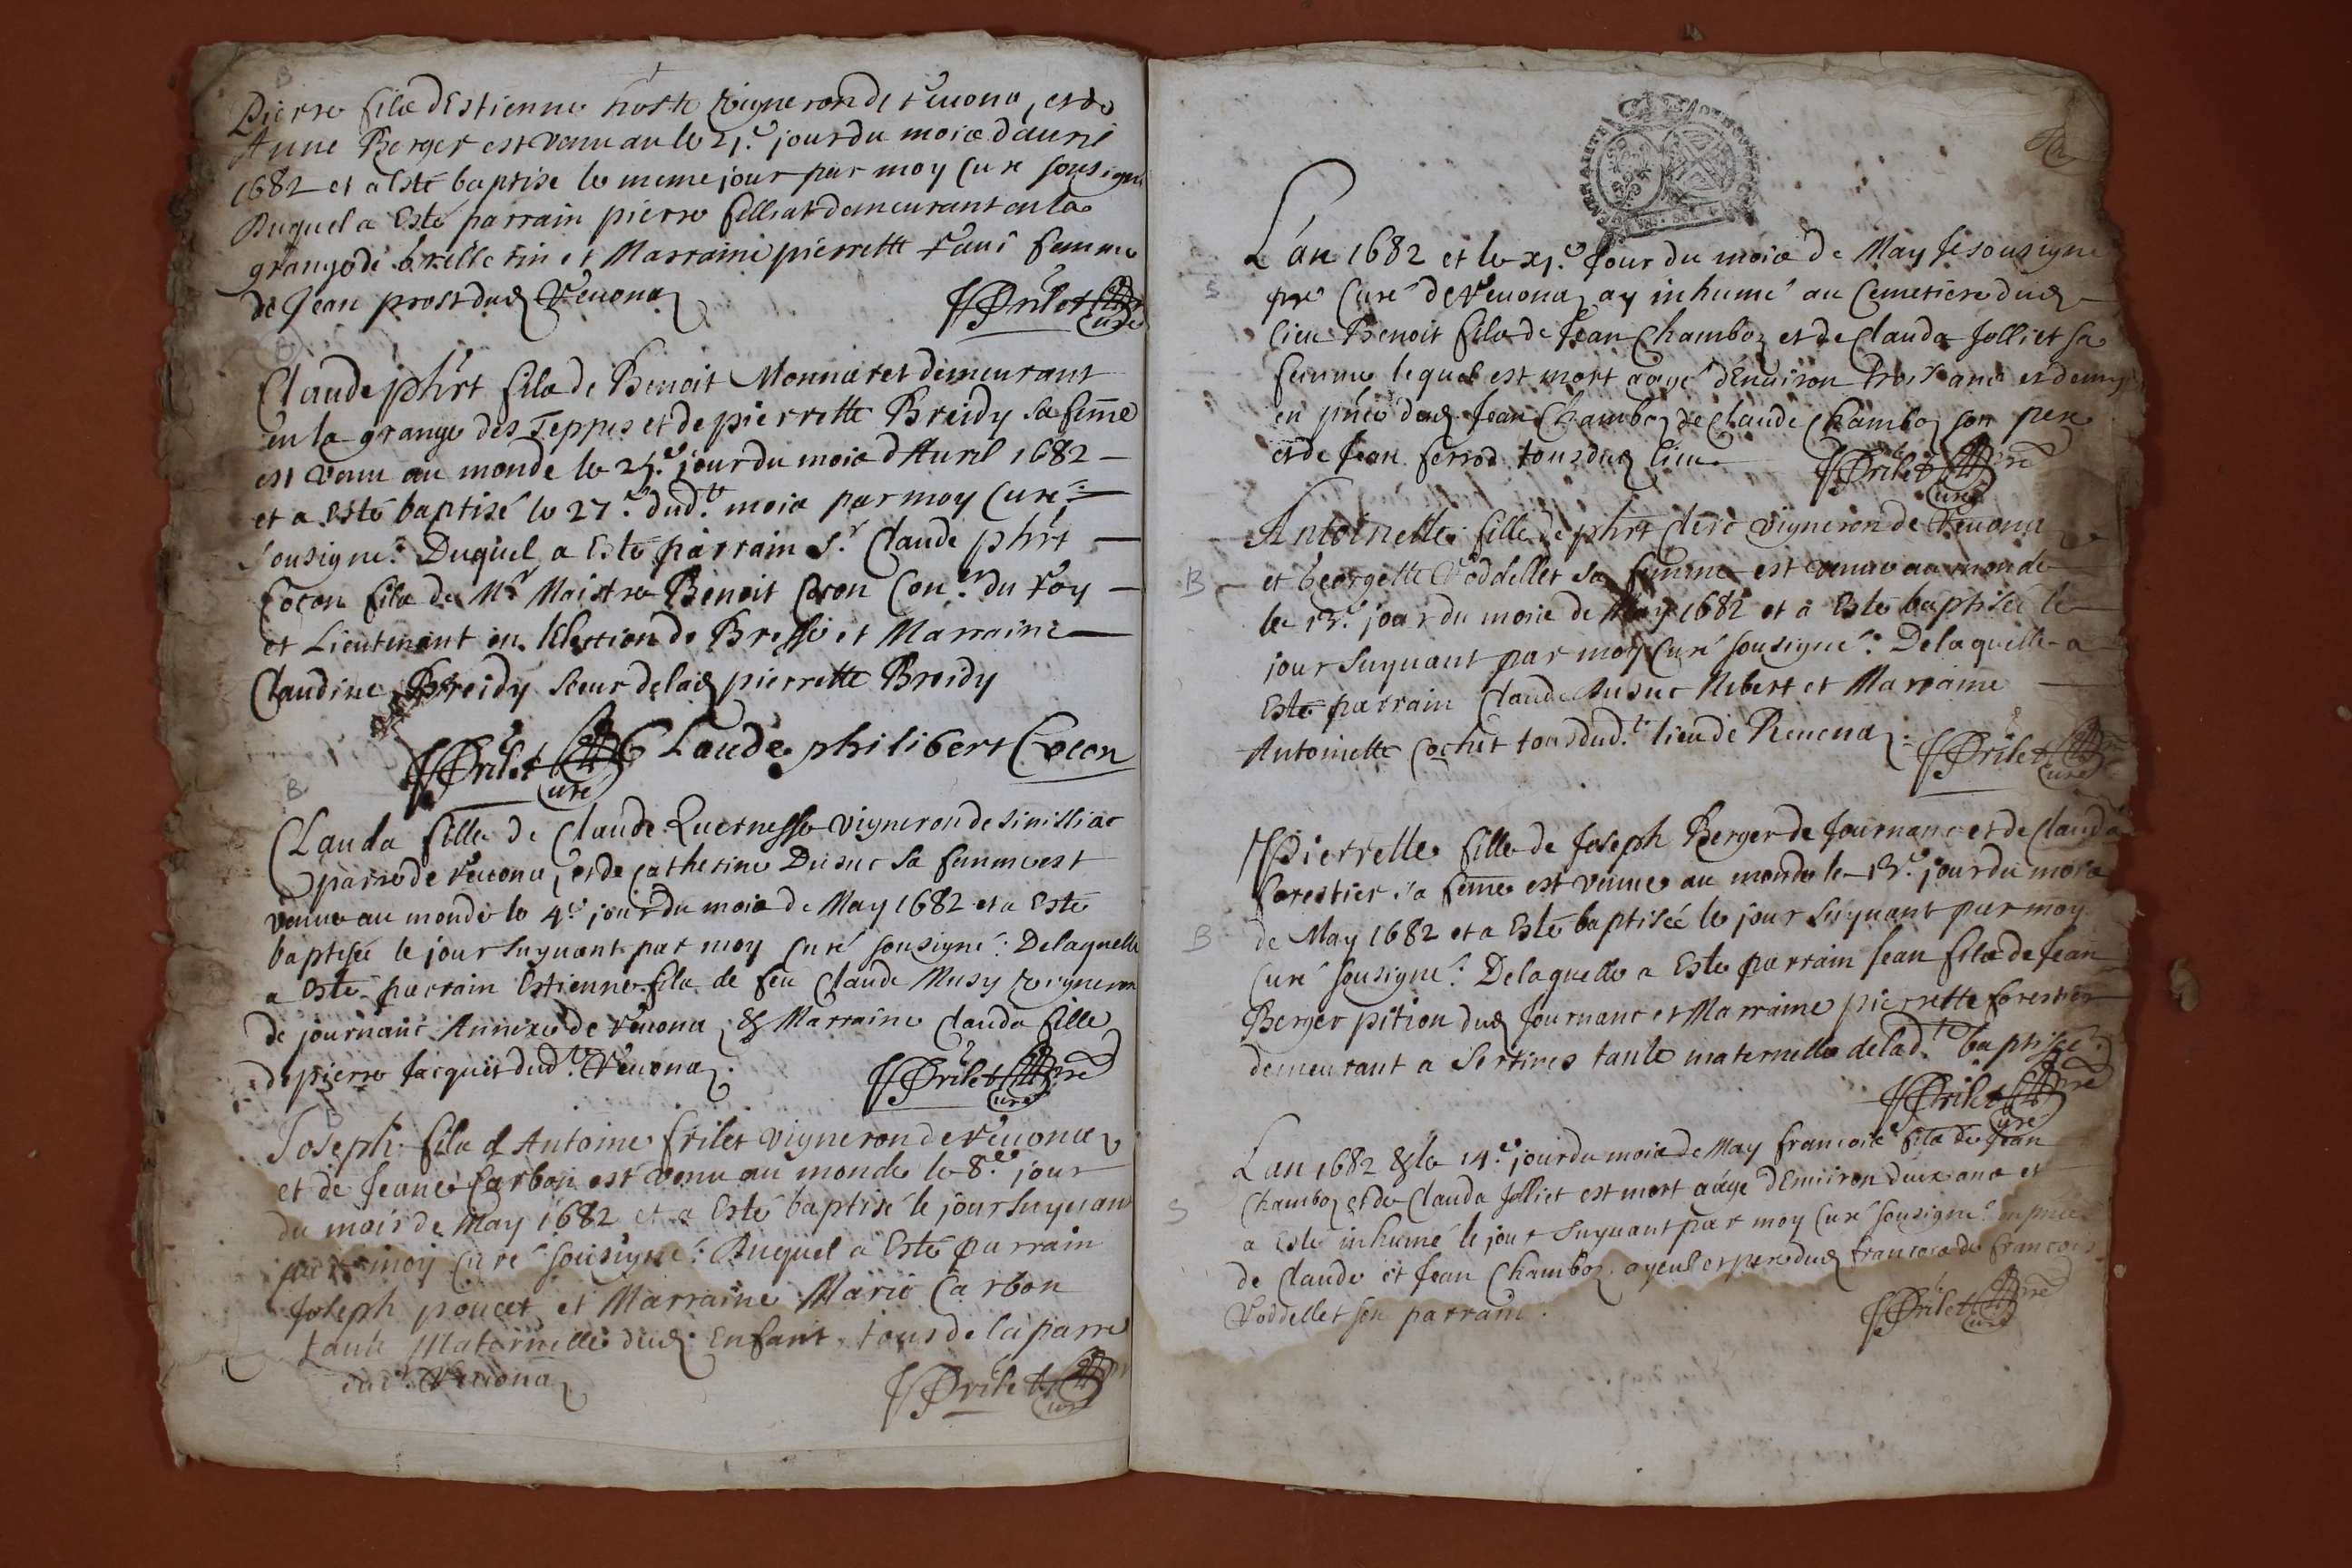 B
Pierre fils d'Estienne vigneron de Reuona, et de
Anne Berger est venu au le 21.e jour du mois d'auril
1682 et a esté baptise le meme jour par moy Curé sousigné
Duquel a Esté parrain pierre felliat demeurant en la
grange de et Marraine pierrette femme
de Jean prost dud Reuona
ffrilet Curé
Claude phirt fils de Benoit Monnaret demeurant
en la grange des Teppes et de pierrette Breidy sa feme
est venu au monde le 25.e jour du mois d'Auril 1682
et a esté baptisé le 27.e dud.t mois par moy Curé
sousigné: Duquel a Esté parrain S.r Claude phirt
Cocon fils de M.r Maistre Benoit Cocon Con.er du roy
et Lieutenant en l'élection de Bresse et Marraine
Claudine Breidy soeur de lad pierrette Breidy
ffrilet Curé Claude philibert Cocon
B
Clauda fille de Claude vigneron de simillac
parre de reuona, et de Catherine Dusuc sa femme est
venue au monde le 4.e jour du mois de May 1682 et a Esté
baptisée le jour suyuant par moy curé sousigné: Delaquelle
a Esté parrain Estienne fils de feu Claude Musy vigneron
de journanc Annexe de reuona & Marraine Clauda fille
de pierre Jacquet dud.t Reuona.
ffrilet pre Curé
B
Joseph fils d'Antoine frilet vigneron de reuona
et de Jeane Carbon est venu au monde le 8.e jour
du mois de May 1682 et a Esté baptisé le jour suyuant
par moy curé sousigné: Duquel a Esté parrain
Joseph poucet et Marraine Marie Carbon
tante Maternelle dud Enfant, tous de la parre
dud.t Reuona
ffrilet Curé
L'an 1682 et le xj.e Jour du mois de May Je sousigne
S
pre Curé de Reuona ay inhumé au Cemetiere dud
lieu Benoit fils de Jean Chamboz et de Clauda Jolliet sa
femme lequel est mort aagé d'Enuiron trois ans et demy
en pnce dud Jean Chamboz de Claude Chamboz son pere
et de Jean ferrod tous dud lieu
ffrilet pre Curé
Antoinette fille de phirt Clerc vigneron de Reuona
B
et Georgette Voddellet sa femme est venue au monde
le 13.e jour du mois de May 1682 et a Esté baptisée le
jour suyuant par moy Curé sousigné: Delaquelle a
Esté parrain Claude Dusuc Nibert et Marraine
Antoinette Cochet tous dud.t lieu de Reuona.
ffrilet pre Curé
Pierrette fille de Joseph Berger de Journanc et de Clauda
forestier sa feme est venue au monde le 13.e jour du mois
B
de May 1682 et a Esté baptisée le jour suyuant par moy
Curé sousigné: Delaquelle a Esté parrain Jean fils de Jean
Berger pition dud Journanc et Marraine pierrette forestier
demeurant a tante maternelle de lad.te baptisée.
ffrilet pre Curé
L'an 1682 & le 14.e jour du mois de May francois fils de Jean
Chamboz et de Clauda Jolliet est mort aagé d'Enuiron deux ans et
S
a Esté inhumé le jour suyuant par moy Curé sousigné en pnce
de Claude et Jean Chamboz ayeul et pere dud francois de francois
Voddellet son parrain.
ffrilet pre Curé